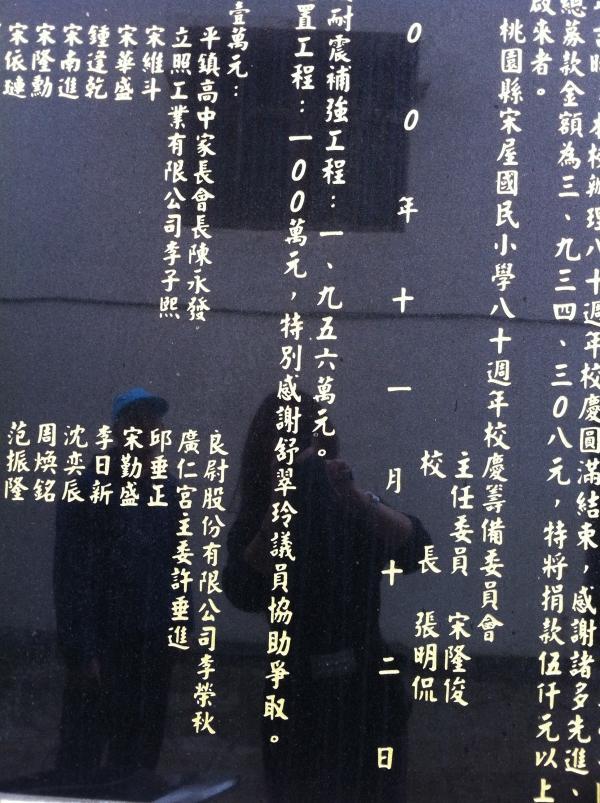 本校辦理八十週年校慶圓滿結束，感謝諸多先進、
總募款金額為三、九三四、三0八元，特將捐款伍仟元以上
啟來者。
桃園縣宋屋國民小學八十週年校慶籌備委員會
主任委員 宋隆俊
校長 張明侃
00年十一月十二日
耐震補強工程：一、九五六萬元。
置工程：一00萬元，特別感謝舒翠玲議員協助爭取。
壹萬元：
平鎮高中家長會長陳永發 良尉股份有限公司李榮秋
立照工業有限公司李子熙 廣仁宮主委許垂進
宋維斗 邱垂正
宋華盛 宋勤盛
鍾達乾 李日新
宋南進 沈奕辰
宋隆勳 周煥銘
宋依璉 范振隆